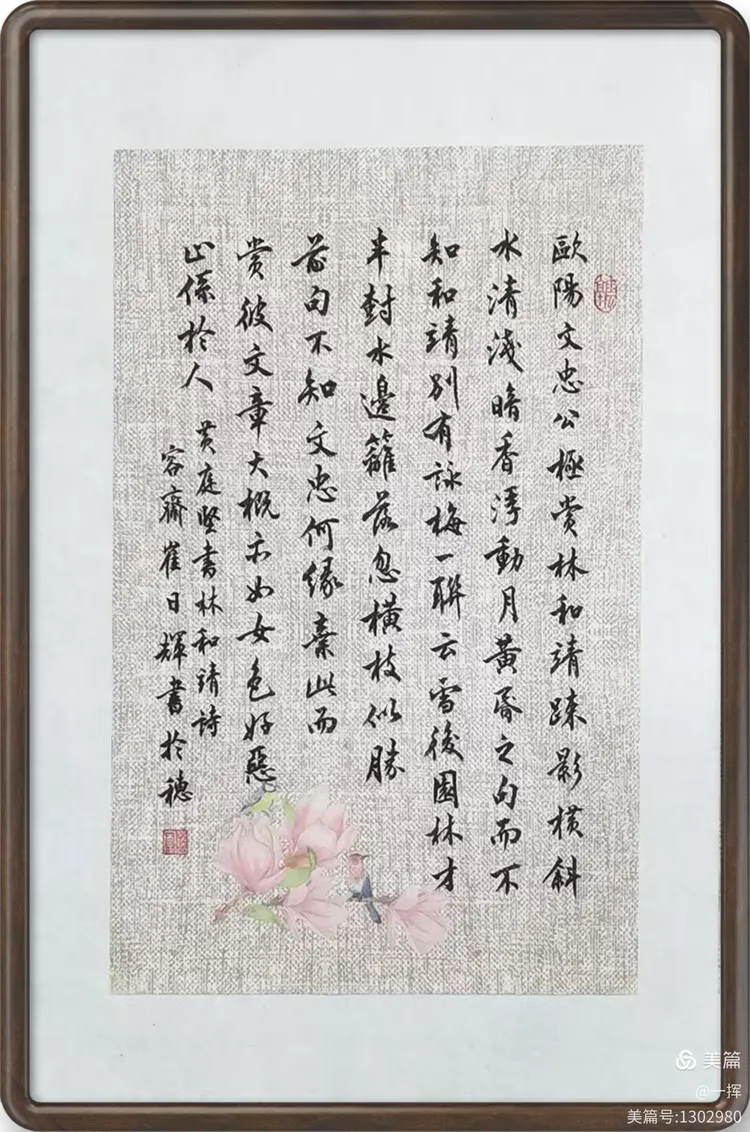 歐陽文忠公極赏林和靖疎影横斜
水清淺暗香浮動月黄昏之句而不
知和靖别有詠梅一聯云雪後園林才
半封水邊籬落忽横枝似勝
前句不知文忠何缘棄此而
赏彼文章大概亦如女色好惡
止係於人
黄庭堅書林和靖詩
容齋崔日輝書於穗
美篇
@一挥
美篇号:1302980